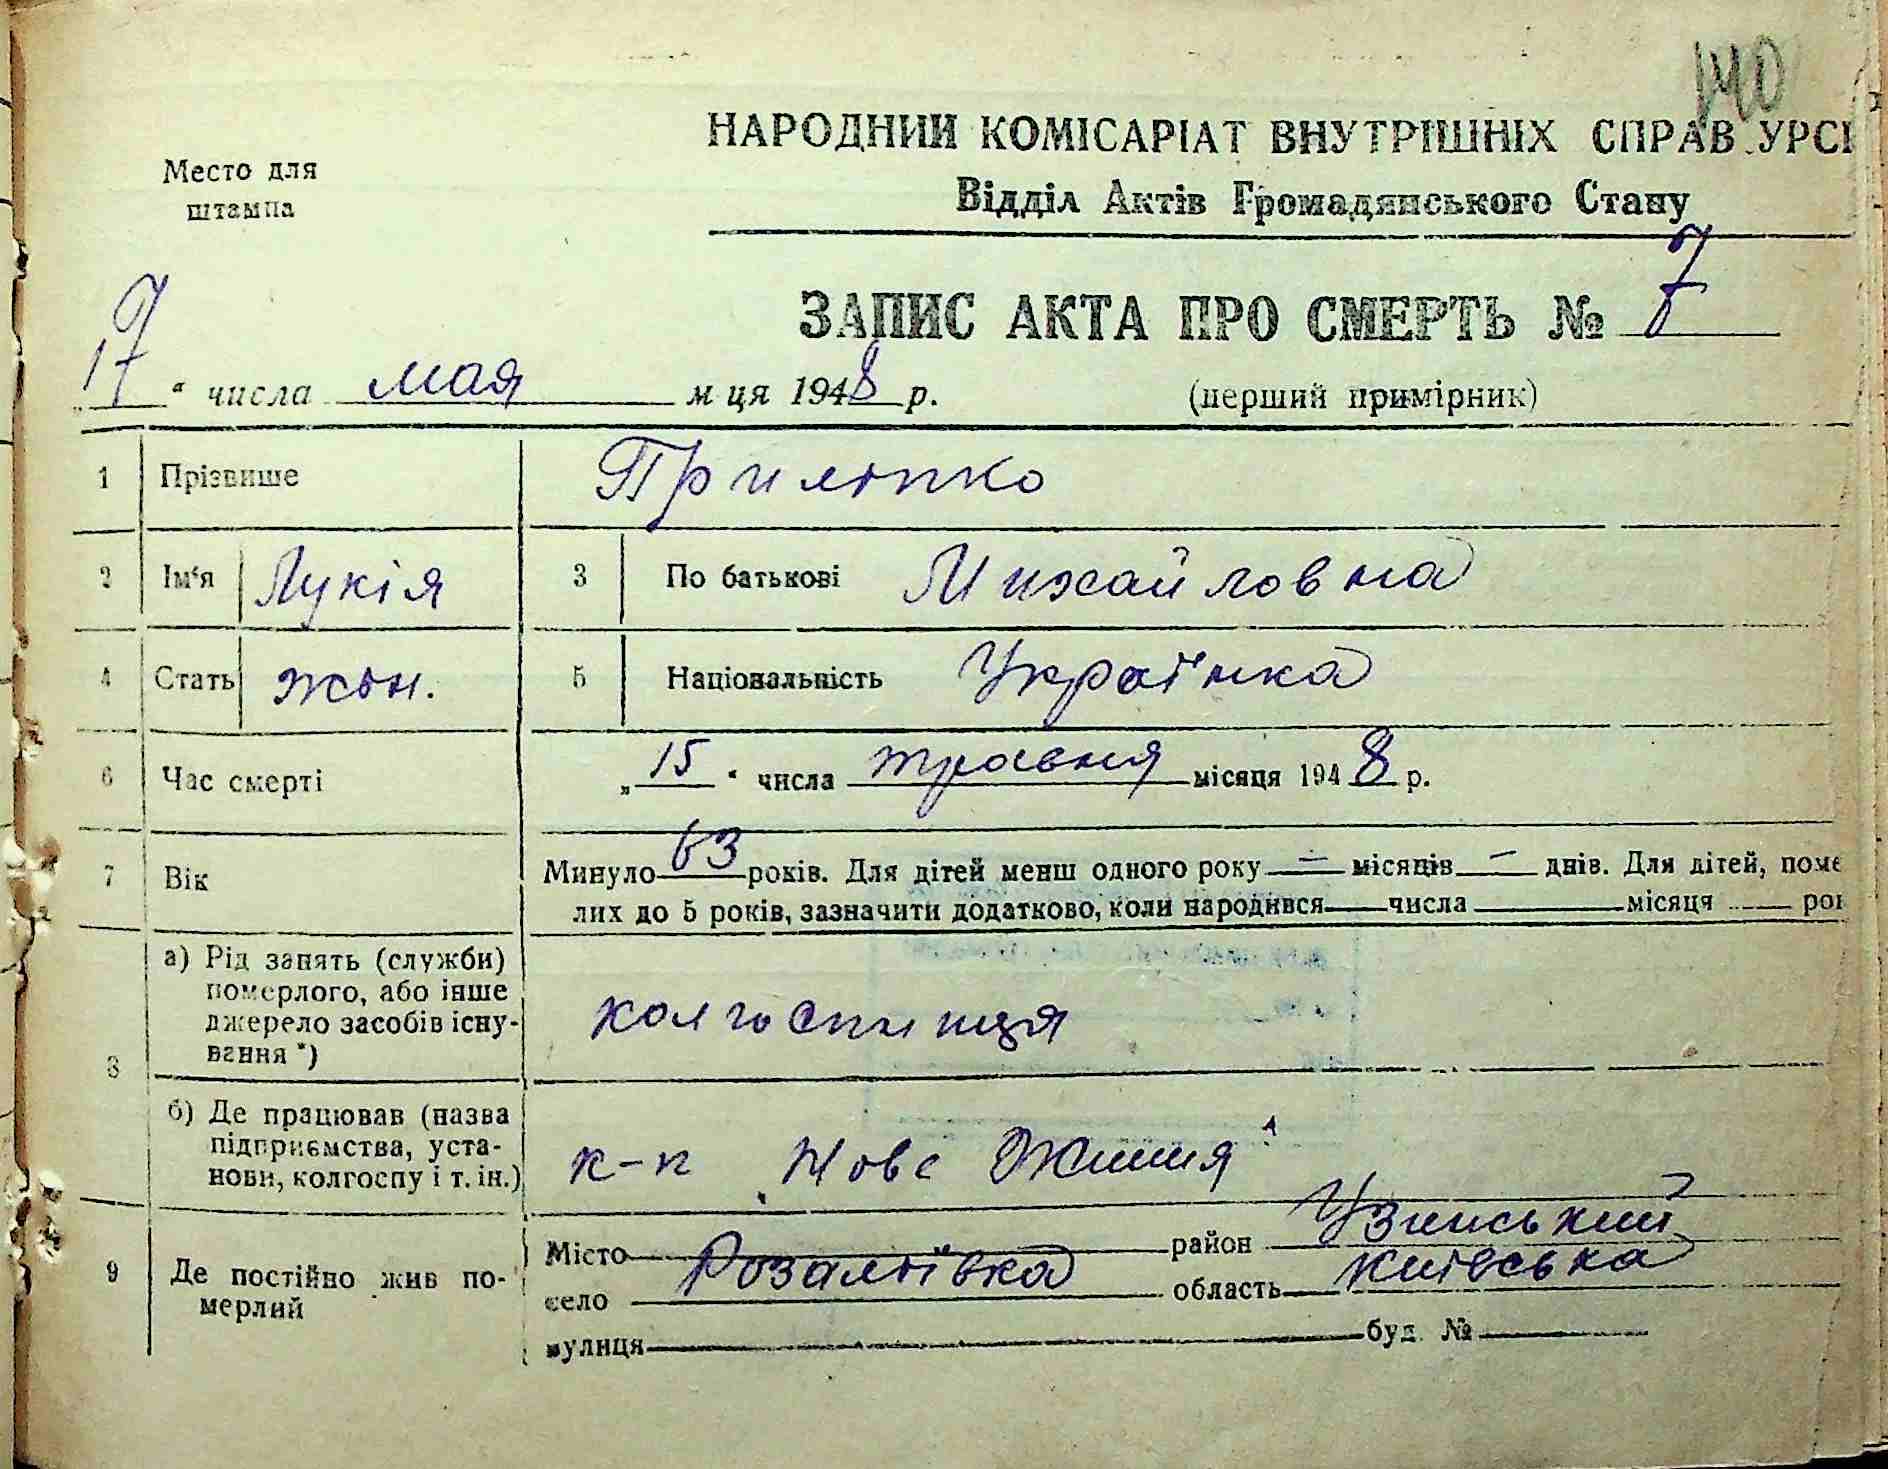 140
НАРОДНИЙ КОМІСАРІАТ ВНУТРІШНІХ СПРАВ УРСР
Место для
штампа
Відділ Актів Громадянського Стану
ЗАПИС АКТА ПРО СМЕРТЬ № 7
17 " числа мая м ця 1948 р. (перший примірник)
1 Прізвище Приліпко
2 Ім'я Лукія 3 По батькові Михайловна
4 Стать жін. 5 Національність Українка
6 Час смерті „15" числа травня місяця 1948 р.
7 Вік Минуло 63 років. Для дітей менш одного року — місяців — днів. Для дітей, поме
лих до 5 років, зазначити додатково, коли народився — числа місяця рок
8 а) Рід занять (служби)
померлого, або інше
джерело засобів існу-
вання *)
колгоспниця
б) Де працював (назва
підприємства, уста-
нови, колгоспу і т. ін.)
к-п „Нове Життя"
9 Де постійно жив по-
мерлий
Місто район Узинський
село Розаліївка область Київська
вулиця буд. №